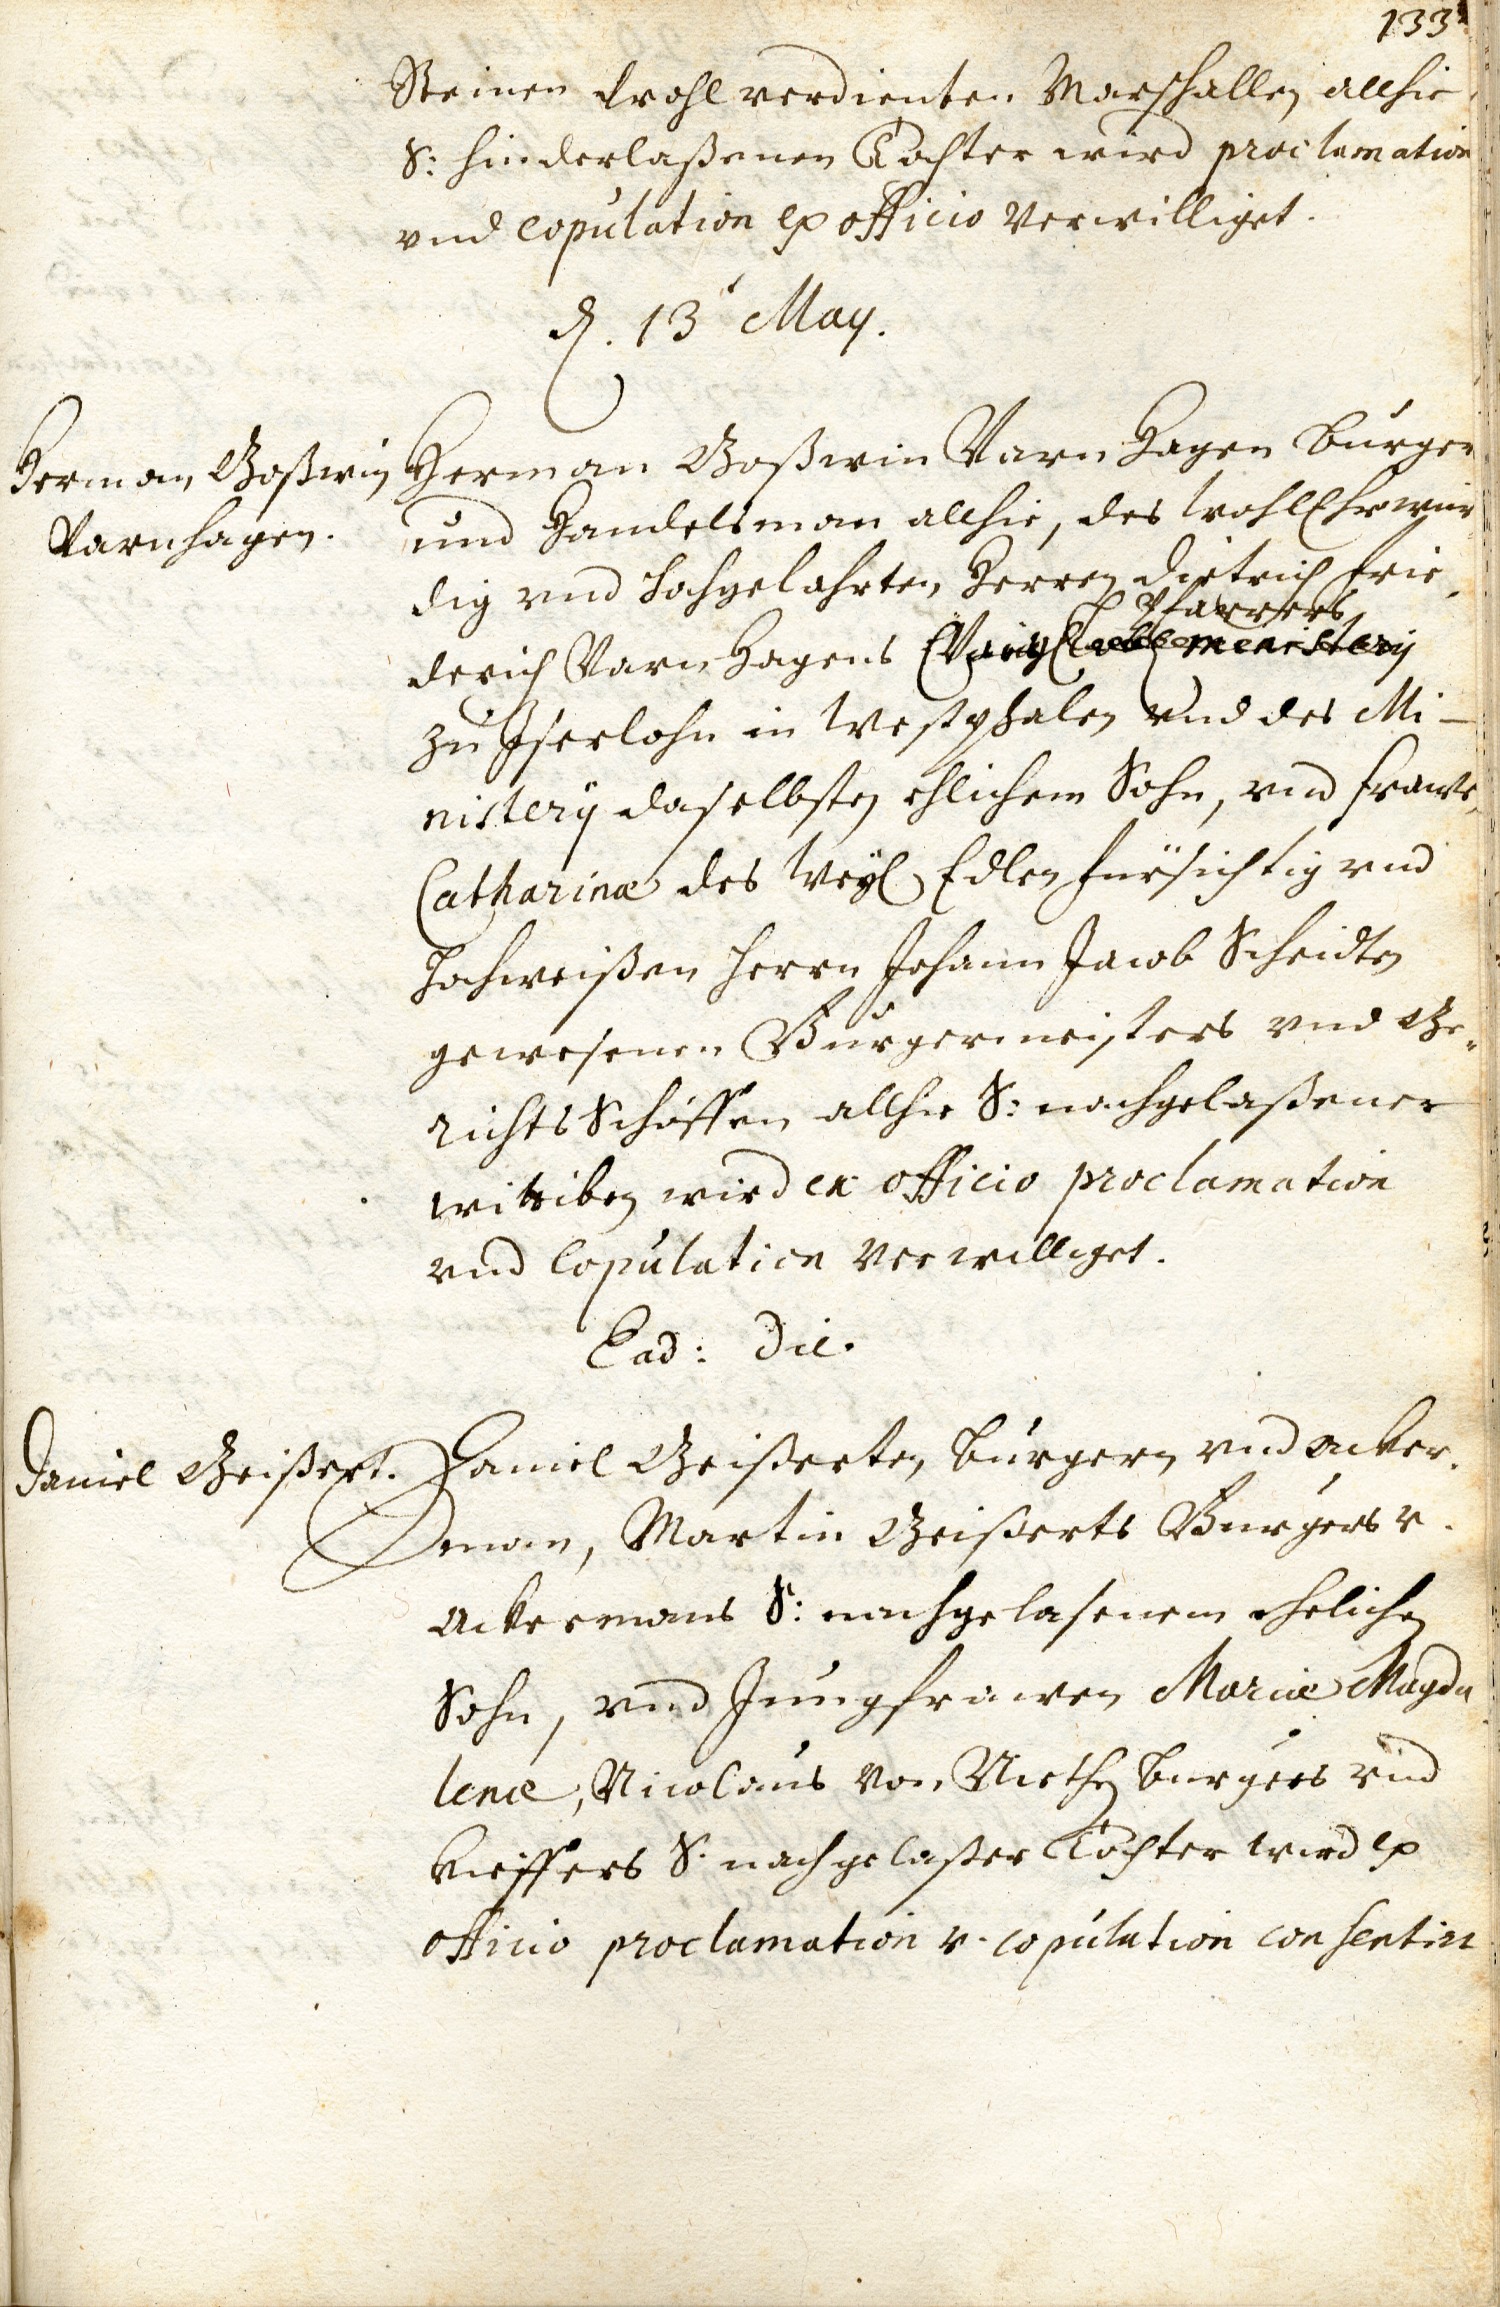 133
Steinen Wohlverdienten Marschallen allhie
S: hinderlaßenen Tochter wird proclamation
vnd Copulation ex officio Verwilliget.
D. 13 May.
Herman Goßwin
Varnhagen.
Herman Goßwin VarnHagen burger
und Handelsman allhie, des WohlEhrwür
dig vnd Hochgelahrten Herren Dietrich Frie-
Pfarrers
derich VarnHagens
zu Iserlohn in Westphalen vnd des Mi-
nistery daselbsten ehlichem Sohn, vnd frawe
Catharinæ des Weyl Edlen fürsichtig vnd
Hochweißen Herrn Johann Jacob Scheidten
gewesenen Burgermeisters vnd Ge-
richts Schöffen allhie S: nachgelaßener
wittiben wird ex officio proclamation
vnd Copulation Verwilliget.
Ead: Die.
Daniel Geißert.
Daniel Geißerten, burgern vnd acker-
man, Martin Geißerts Burgers v.
Ackermans S: nachgelasenem ehelichen
Sohn, vnd Jungfrawen Mariæ Magda
lenæ, Nicolaus von burgers vnd
Kieffers S. nachgelaßer Tochter wird ex
officio proclamation v. copulation consentirt